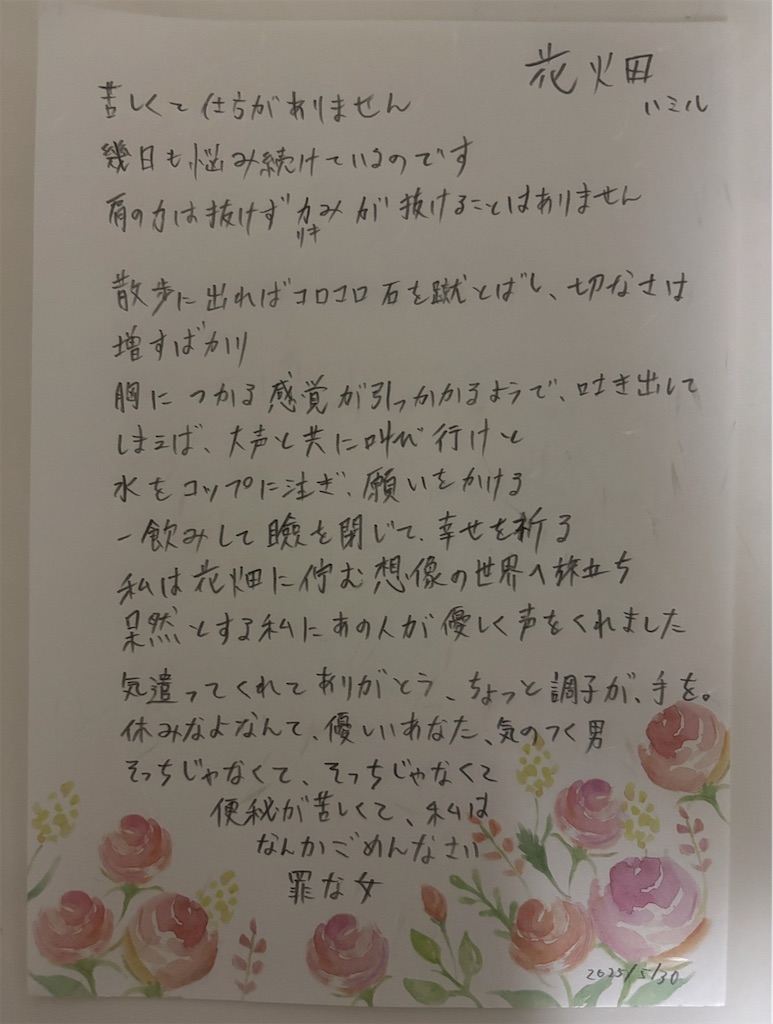 花畑
ハミル
苦しくて仕方がありません
幾日も悩み続けているのです
肩の力は抜けず力みが抜けることはありません
りき
散歩に出ればコロコロ石を蹴とばし、切なさは
増すばかり
胸につかる感覚が引っかかるようで、吐き出して
しまえば、大声と共に叫び行けと
水をコップに注ぎ、願いをかける
一飲みして瞼を閉じて、幸せを祈る
私は花畑に佇む想像の世界へ旅立ち
呆然とする私にあの人が優しく声をくれました
気遣ってくれてありがとう、ちょっと調子が、手を。
休みなよなんて、優しいあなた、気のつく男
そっちじゃなくて、そっちじゃなくて
便秘が苦しくて、私は
なんかごめんなさい
罪な女
2025/5/30